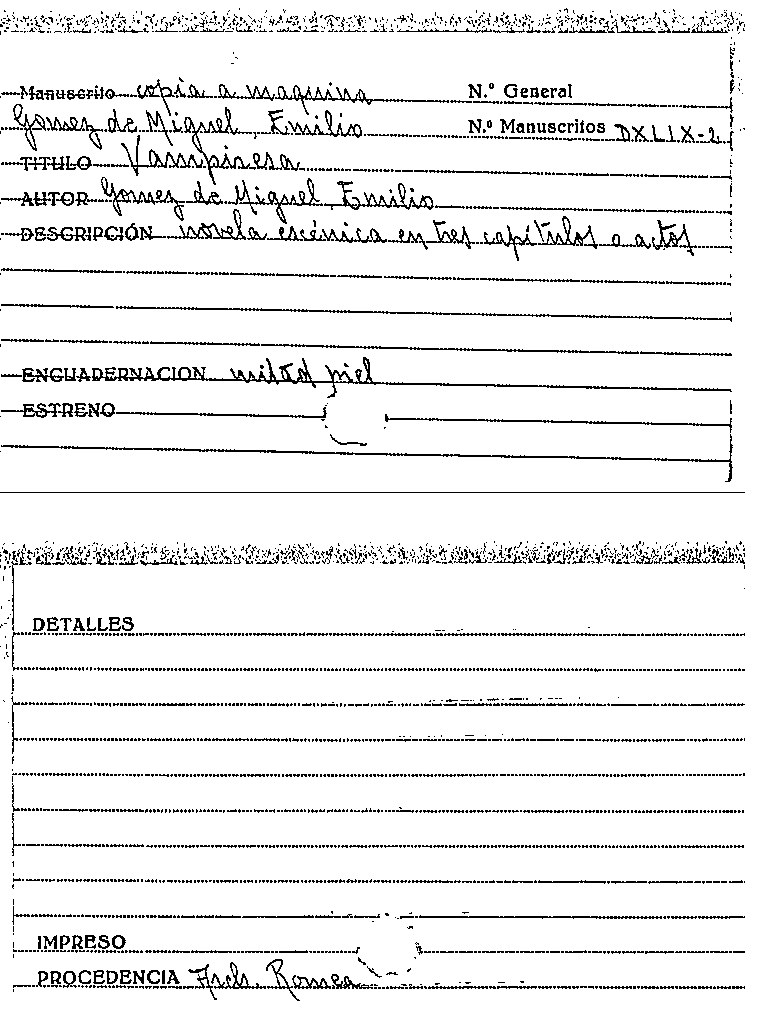 Manuscrito copia a maquina N.º General
Gomez de Miguel, Emilio N.º Manuscritos DXLIX-2
TITULO Vampiresa
AUTOR Gomez de Miguel, Emilio
DESCRIPCIÓN novela escénica en tres capítulos o actos
ENCUADERNACION mitad piel
ESTRENO
DETALLES
IMPRESO
PROCEDENCIA Arch. Romea